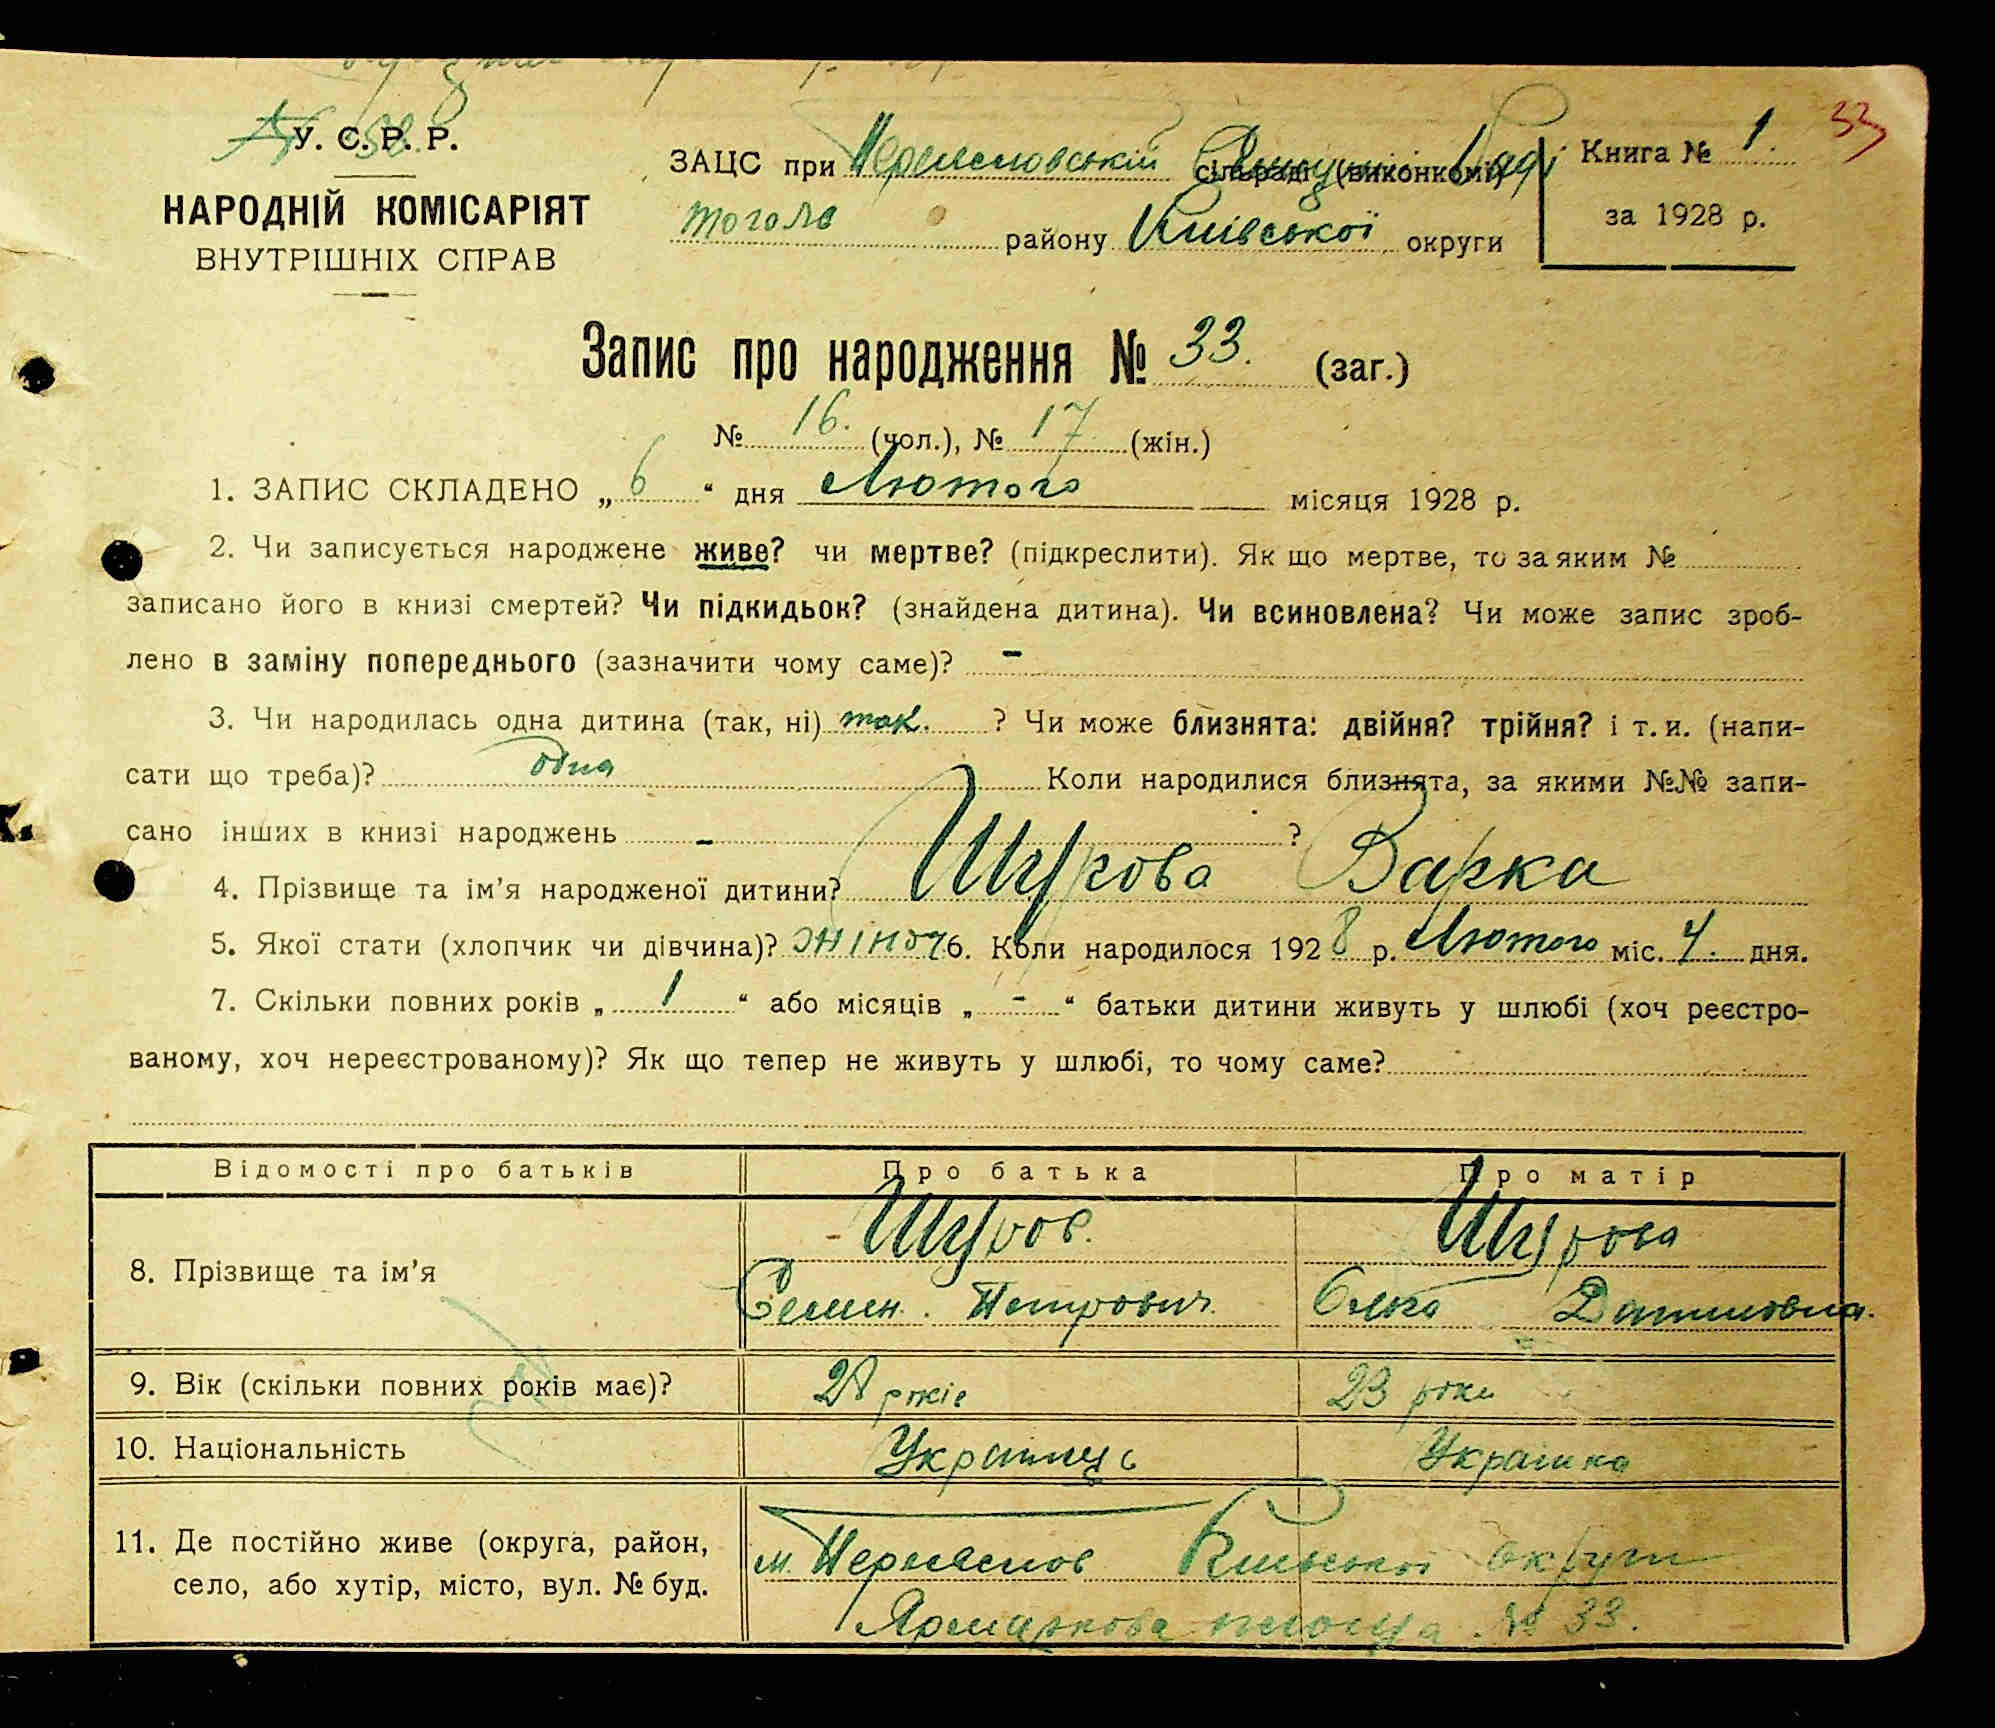 33
У. С. Р. Р.
НАРОДНІЙ КОМІСАРІЯТ
ВНУТРІШНІХ СПРАВ
ЗАЦС при сільраді (виконкомі)
того ж району Київської округи
Книга № 1.
за 1928 р.
Запис про народження № 33. (заг.)
№ 16. (чол.), № 17 (жін.)
1. ЗАПИС СКЛАДЕНО „ 6 “ дня Лютого місяця 1928 р.
2. Чи записується народжене живе? чи мертве? (підкреслити). Як що мертве, то за яким №
записано його в книзі смертей? Чи підкидьок? (знайдена дитина). Чи всиновлена? Чи може запис зроб-
лено в заміну попереднього (зазначити чому саме)? -
3. Чи народилась одна дитина (так, ні) так. ? Чи може близнята: двійня? трійня? і т. и. (напи-
сати що треба)? одна Коли народилися близнята, за якими №№ запи-
сано інших в книзі народжень - ?
4. Прізвище та ім'я народженої дитини? Шурова Варка
5. Якої стати (хлопчик чи дівчина)? жіноч 6. Коли народилося 1928 р. Лютого міс. 4. дня.
7. Скільки повних років „ 1 “ або місяців „ - “ батьки дитини живуть у шлюбі (хоч реєстро-
ваному, хоч нереєстрованому)? Як що тепер не живуть у шлюбі, то чому саме?
Відомості про батьків Про батька Про матір
8. Прізвище та ім'я Шуров. Шурова
Семен Петрович Ольга Данилівна.
9. Вік (скільки повних років має)? років 23 роки
10. Національність Українець Українка
11. Де постійно живе (округа, район,
село, або хутір, місто, вул. № буд.
м. Переяслов Київської округи
Ярмаркова площа № 33.